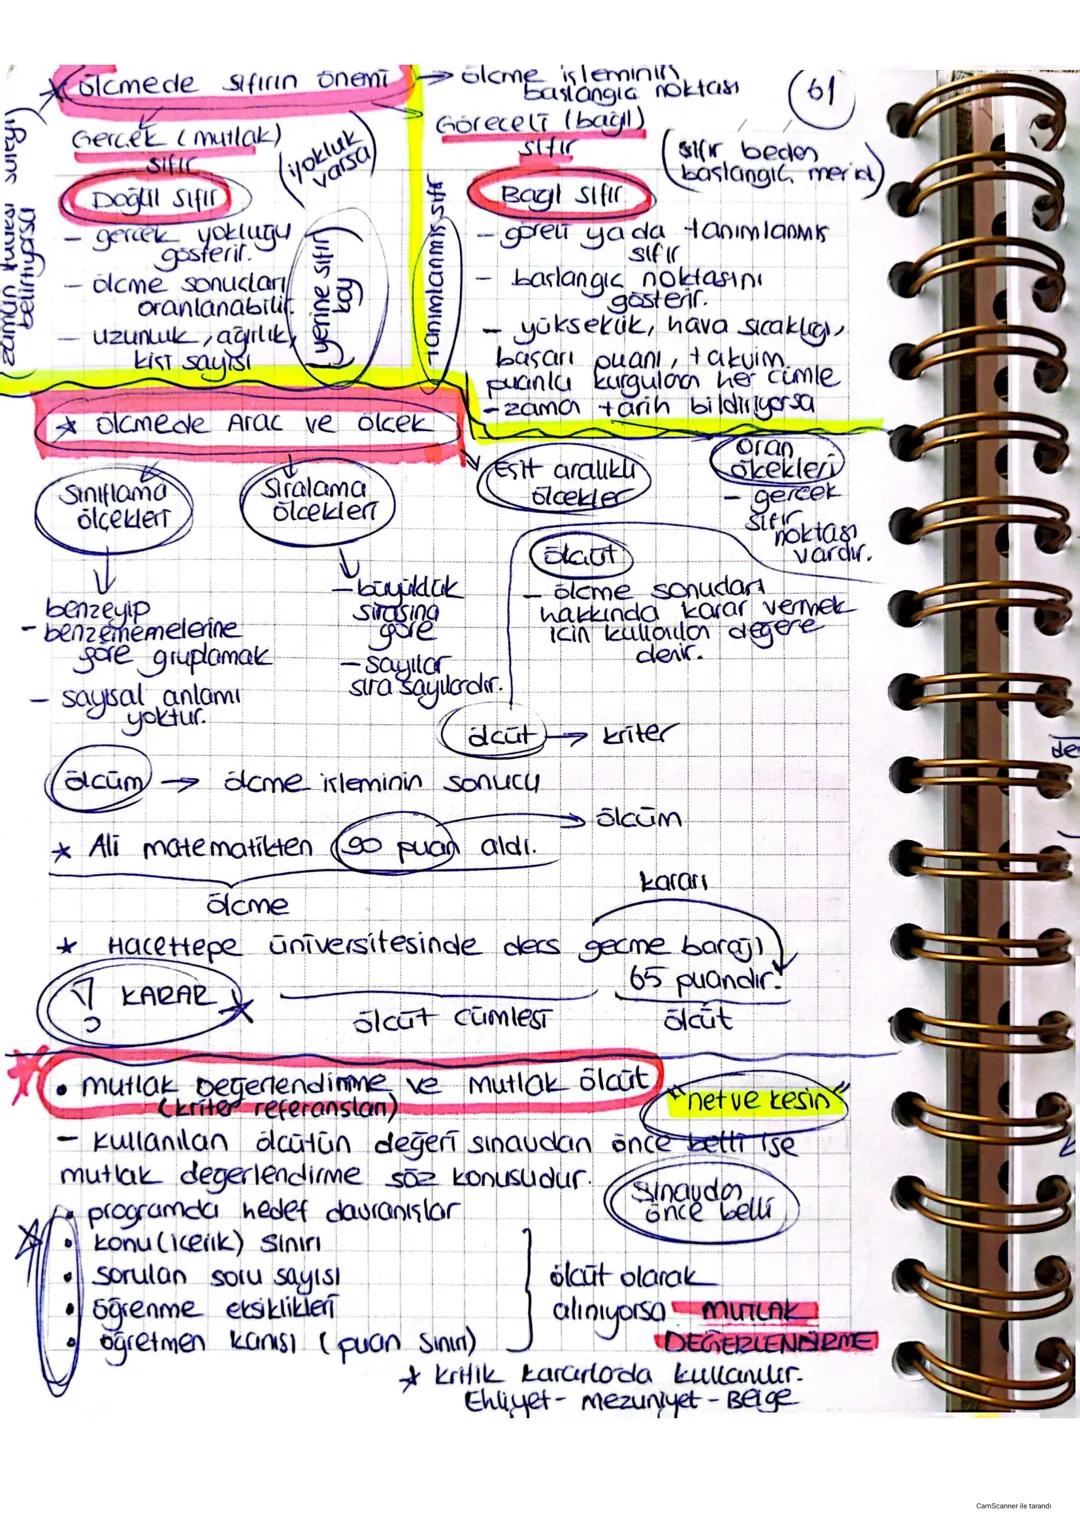 61
* ölçmede sıfırın önemi → ölçme işleminin
başlangıç noktası
Gerçek (mutlak)
sıfır
(yokluk
varsa)
Doğal sıfır
- gerçek yokluğu
gösterir.
- ölçme sonuçları
oranlanabilir.
- uzunluk, ağırlık,
kişi sayısı
(yerine sıfır
koy)
zamanın
süreyi
belirtiyorsa
tanımlanmış sıfır
Göreceli (bağıl)
sıfır
(sıfır
başlangıç
Bağıl sıfır
- göreli ya da tanımlanmış
sıfır
- başlangıç noktasını
gösterir.
- yükseklik, hava sıcaklığı,
başarı puanı, takvim,
puanla kurgulanan her cümle
- zaman tarih bildiriyorsa
* ölçmede Araç ve ölçek
Sınıflama
ölçekleri
benzeyip
- benzememelerine
göre gruplamak
- sayısal anlamı
yoktur.
Sıralama
ölçekleri
- büyüklük
sırasına
göre
- sayılar
sıra sayılarıdır.
Eşit aralıklı
ölçekler
Oran
ölçekleri
- gerçek
sıfır
noktası
vardır.
ölçüt
- ölçme sonuçları
hakkında karar vermek
için kullanılan değere
denir.
ölçüt → kriter
ölçüm → ölçme işleminin sonucu
* Ali matematikten 90 puan aldı. → ölçüm
ölçme
kararı
* Hacettepe üniversitesinde ders geçme barajı
65 puandır.
! KARAR
ölçüt cümlesi
ölçüt
• mutlak Değerlendirme ve mutlak ölçüt
(kriter referanslan)
"net ve kesin"
- kullanılan ölçütün değeri sınavdan önce belli ise
mutlak değerlendirme söz konusudur.
sınavdan
önce belli
• programda hedef davranışlar
• konu (içerik) sınırı
• sorulan soru sayısı
• öğrenme eksiklikleri
• öğretmen kanısı (puan sınırı)
ölçüt olarak
alınıyorsa MUTLAK
DEĞERLENDİRME
* kritik kararlarda kullanılır.
Ehliyet - mezuniyet - Belge
de
CamScanner ile tarandı